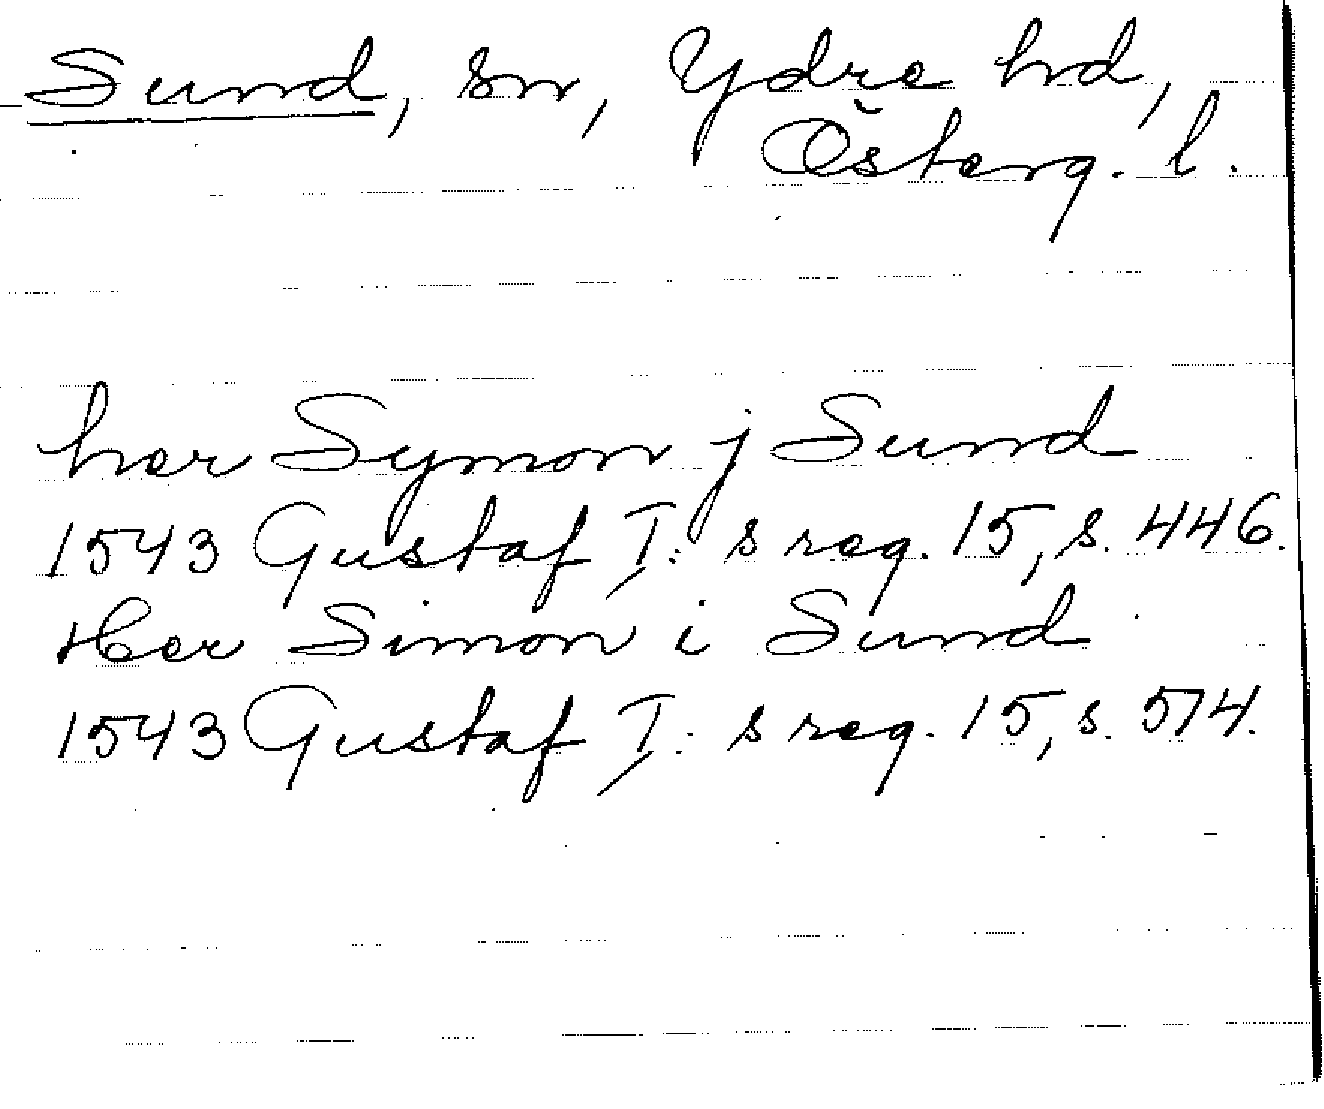 Sund, sn, Ydre hd,
Österg. l.
her Symon j Sund
1543 Gustaf I: s reg. 15, s. 446.
Her Simon i Sund
1543 Gustaf I: s reg. 15, s. 574.